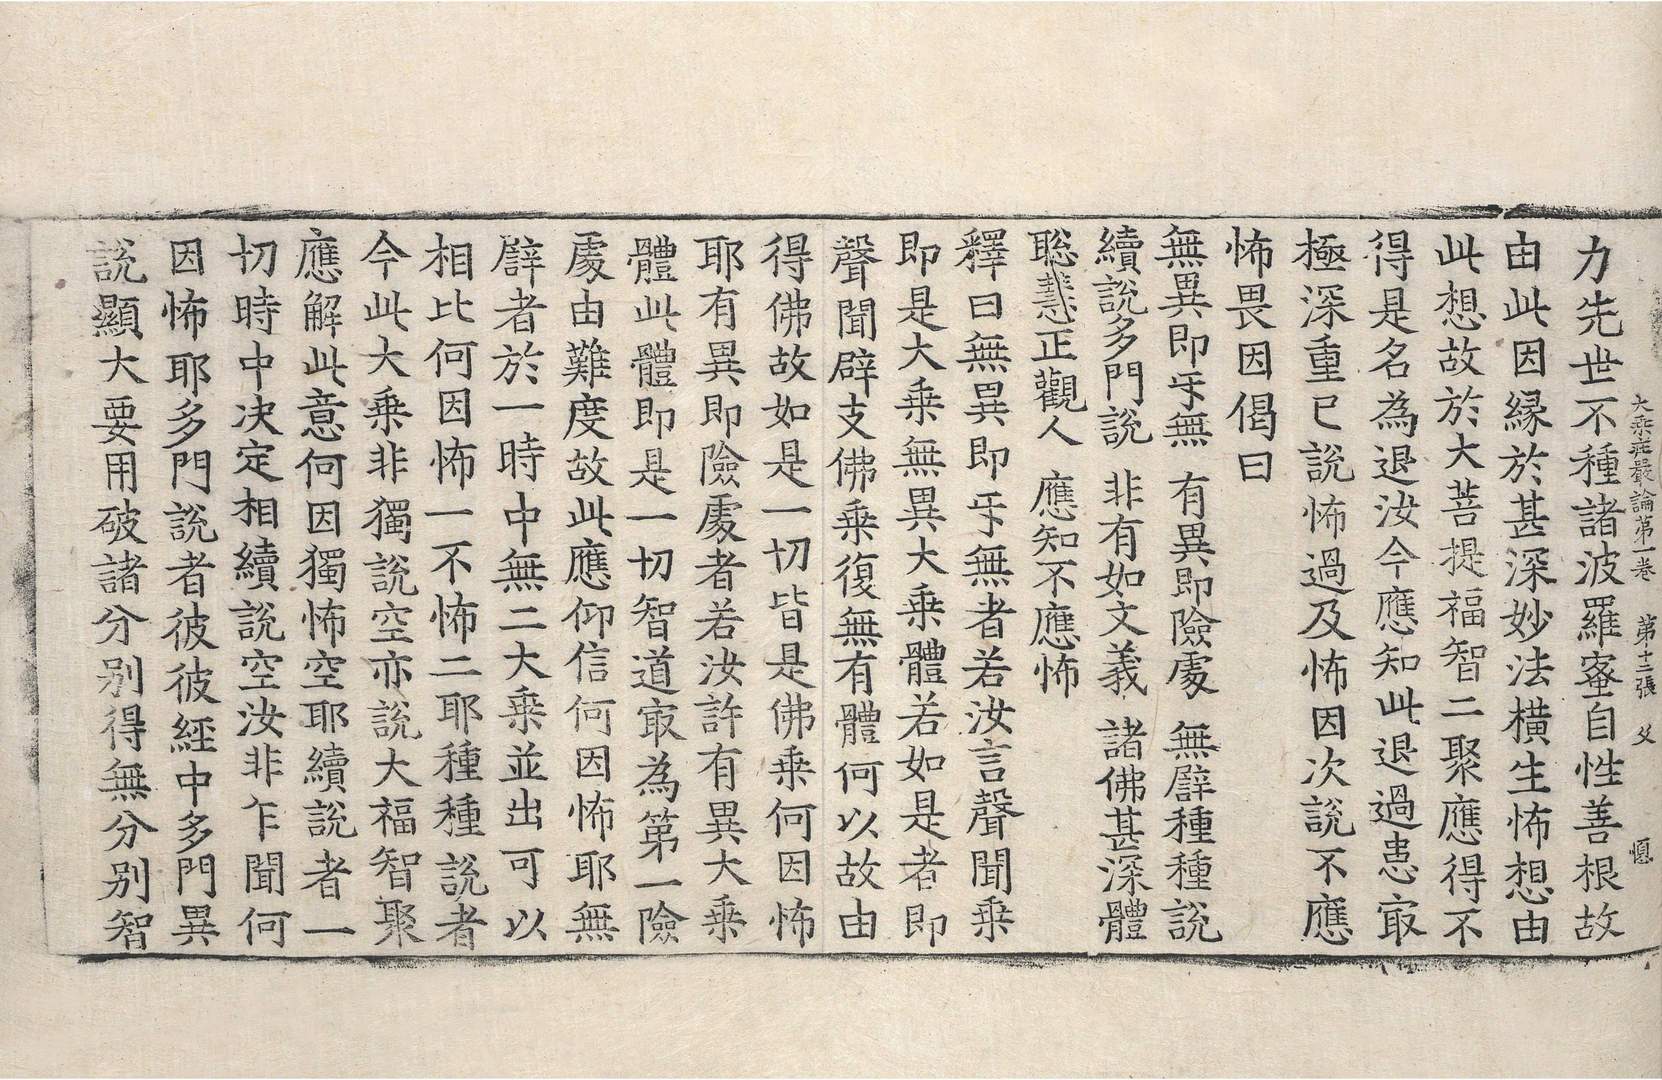 大乘莊嚴論第一卷　第十二張　父　愿
力先世不種諸波羅蜜自性善根故
由此因縁於甚深妙法橫生怖想由
此想故於大菩提福智二聚應得不
得是名為退汝今應知此退退過患㝡
極深重已說怖過及怖因次說不應
怖畏因偈曰
無異即㸦無　有異即險處　無辟種種說
續說多門說　非有如文義　諸佛甚深體
聡慧正觀人　應知不應怖
釋曰無異即㸦無者若汝言聲聞乘
即是大乘無異大乘體若如是者即
聲聞辟支佛乘復無有體何以故由
得佛故如是一切皆是佛乘何因怖
耶有異即險處者若汝許有異大乘
體此體即是一切智道㝡為第一險
處由難度故此應仰信何因怖耶無
辟者於一時中無二大乘並出可以
相比何因怖一不怖二耶種種說者
今此大乘非獨說空亦說大福智聚
應解此意何因獨怖空耶續說者一
切時中決定相續說空汝非乍聞何
因怖耶多門說者彼彼經中多門異
說顯大要用破諸分別得無分別智